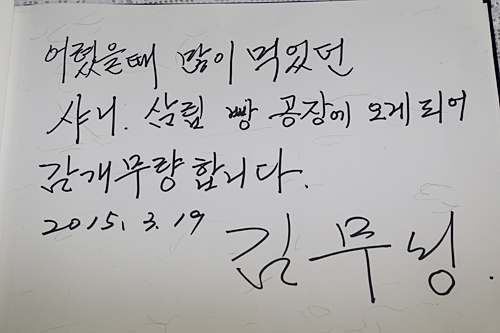 어렸을때 많이 먹었던
샤니. 삼립 빵 공장에 오게되어
감개무량합니다.
2015. 3. 19
김무성.